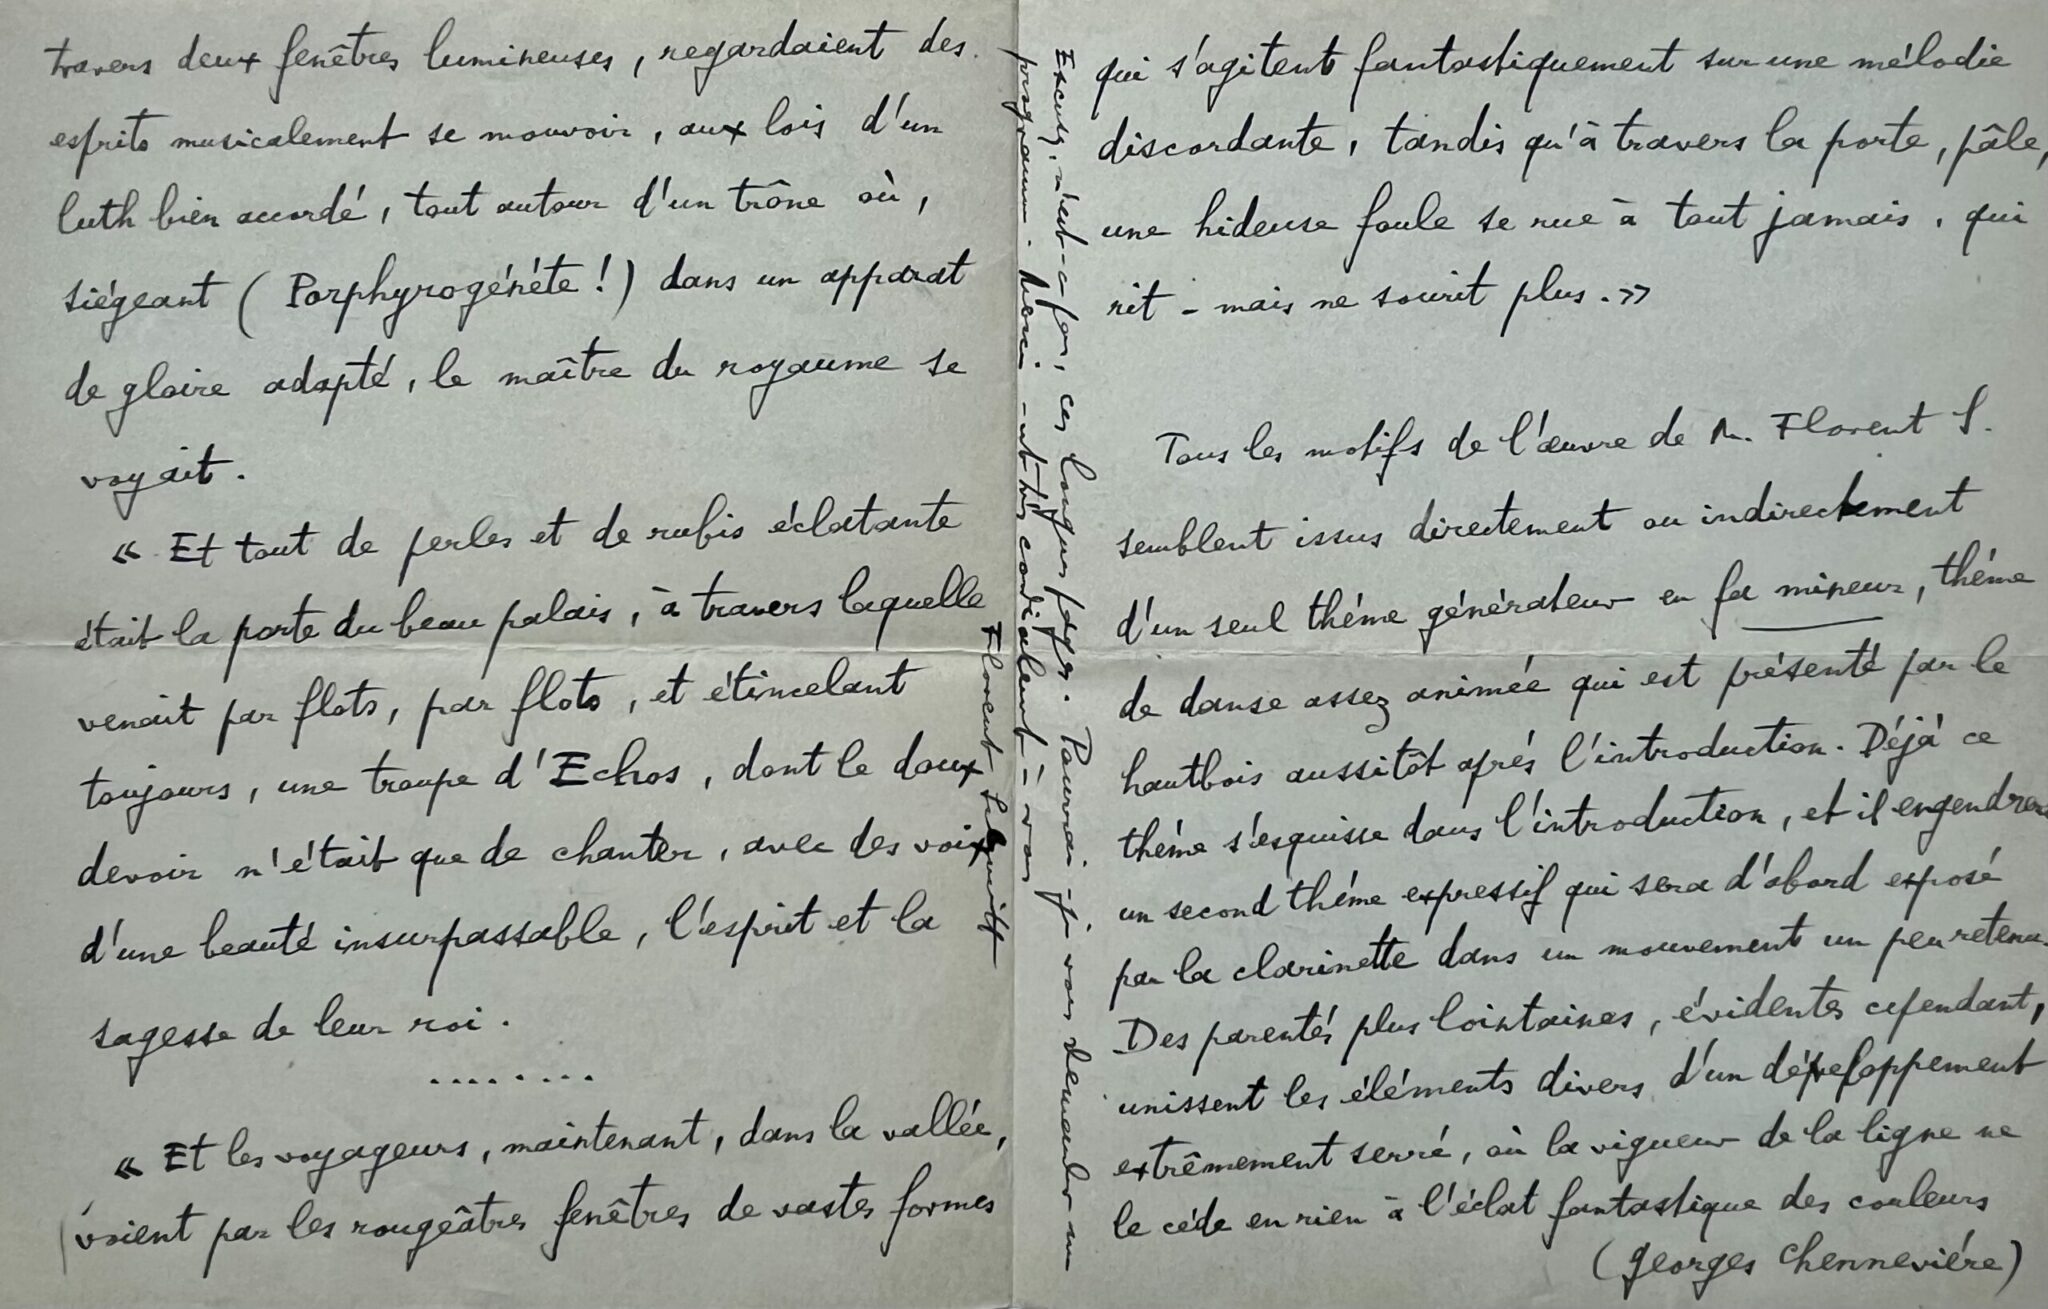 travers deux fenêtres lumineuses, regardaient des
esprits musicalement se mouvoir, aux lois d'un
luth bien accordé, tout autour d'un trône où,
siégeant (Porphyrogénéte!) dans un apparat
de gloire adapté, le maître du royaume se
voyait.
« Et tout de perles et de rubis éclatante
était la porte du beau palais, à travers laquelle
venait par flots, par flots, et étincelant
toujours, une troupe d'Echos, dont le doux
devoir n'était que de chanter, avec des voix
d'une beauté insurpassable, l'esprit et la
sagesse de leur roi.
........
« Et les voyageurs, maintenant, dans la vallée,
voient par les rougeâtres fenêtres de vastes formes
qui s'agitent fantastiquement sur une mélodie
discordante, tandis qu'à travers la porte, pâle,
une hideuse foule se rue à tout jamais, qui
rit - mais ne sourit plus.»
Tous les motifs de l'œuvre de M. Florent S.
semblent issus directement ou indirectement
d'un seul théme générateur en fa mineur, théme
de danse assez animée qui est présenté par le
hautbois aussitôt aprés l'introduction. Déjà ce
théme s'esquisse dans l'introduction, et il engendrera
un second théme expressif qui sera d'abord exposé
par la clarinette dans un mouvement un peu retenu.
Des parentés plus lointaines, évidentes cependant,
unissent les éléments divers d'un développement
extrêmement serré, où la vigueur de la ligne ne
le céde en rien à l'éclat fantastique des couleurs
(Georges Chenneviére)
Excusez, n'est-ce pas, ces longues pages. Pourrai-je vous demander un
programme. Merci - et très cordialement à vous
Florent Schmitt